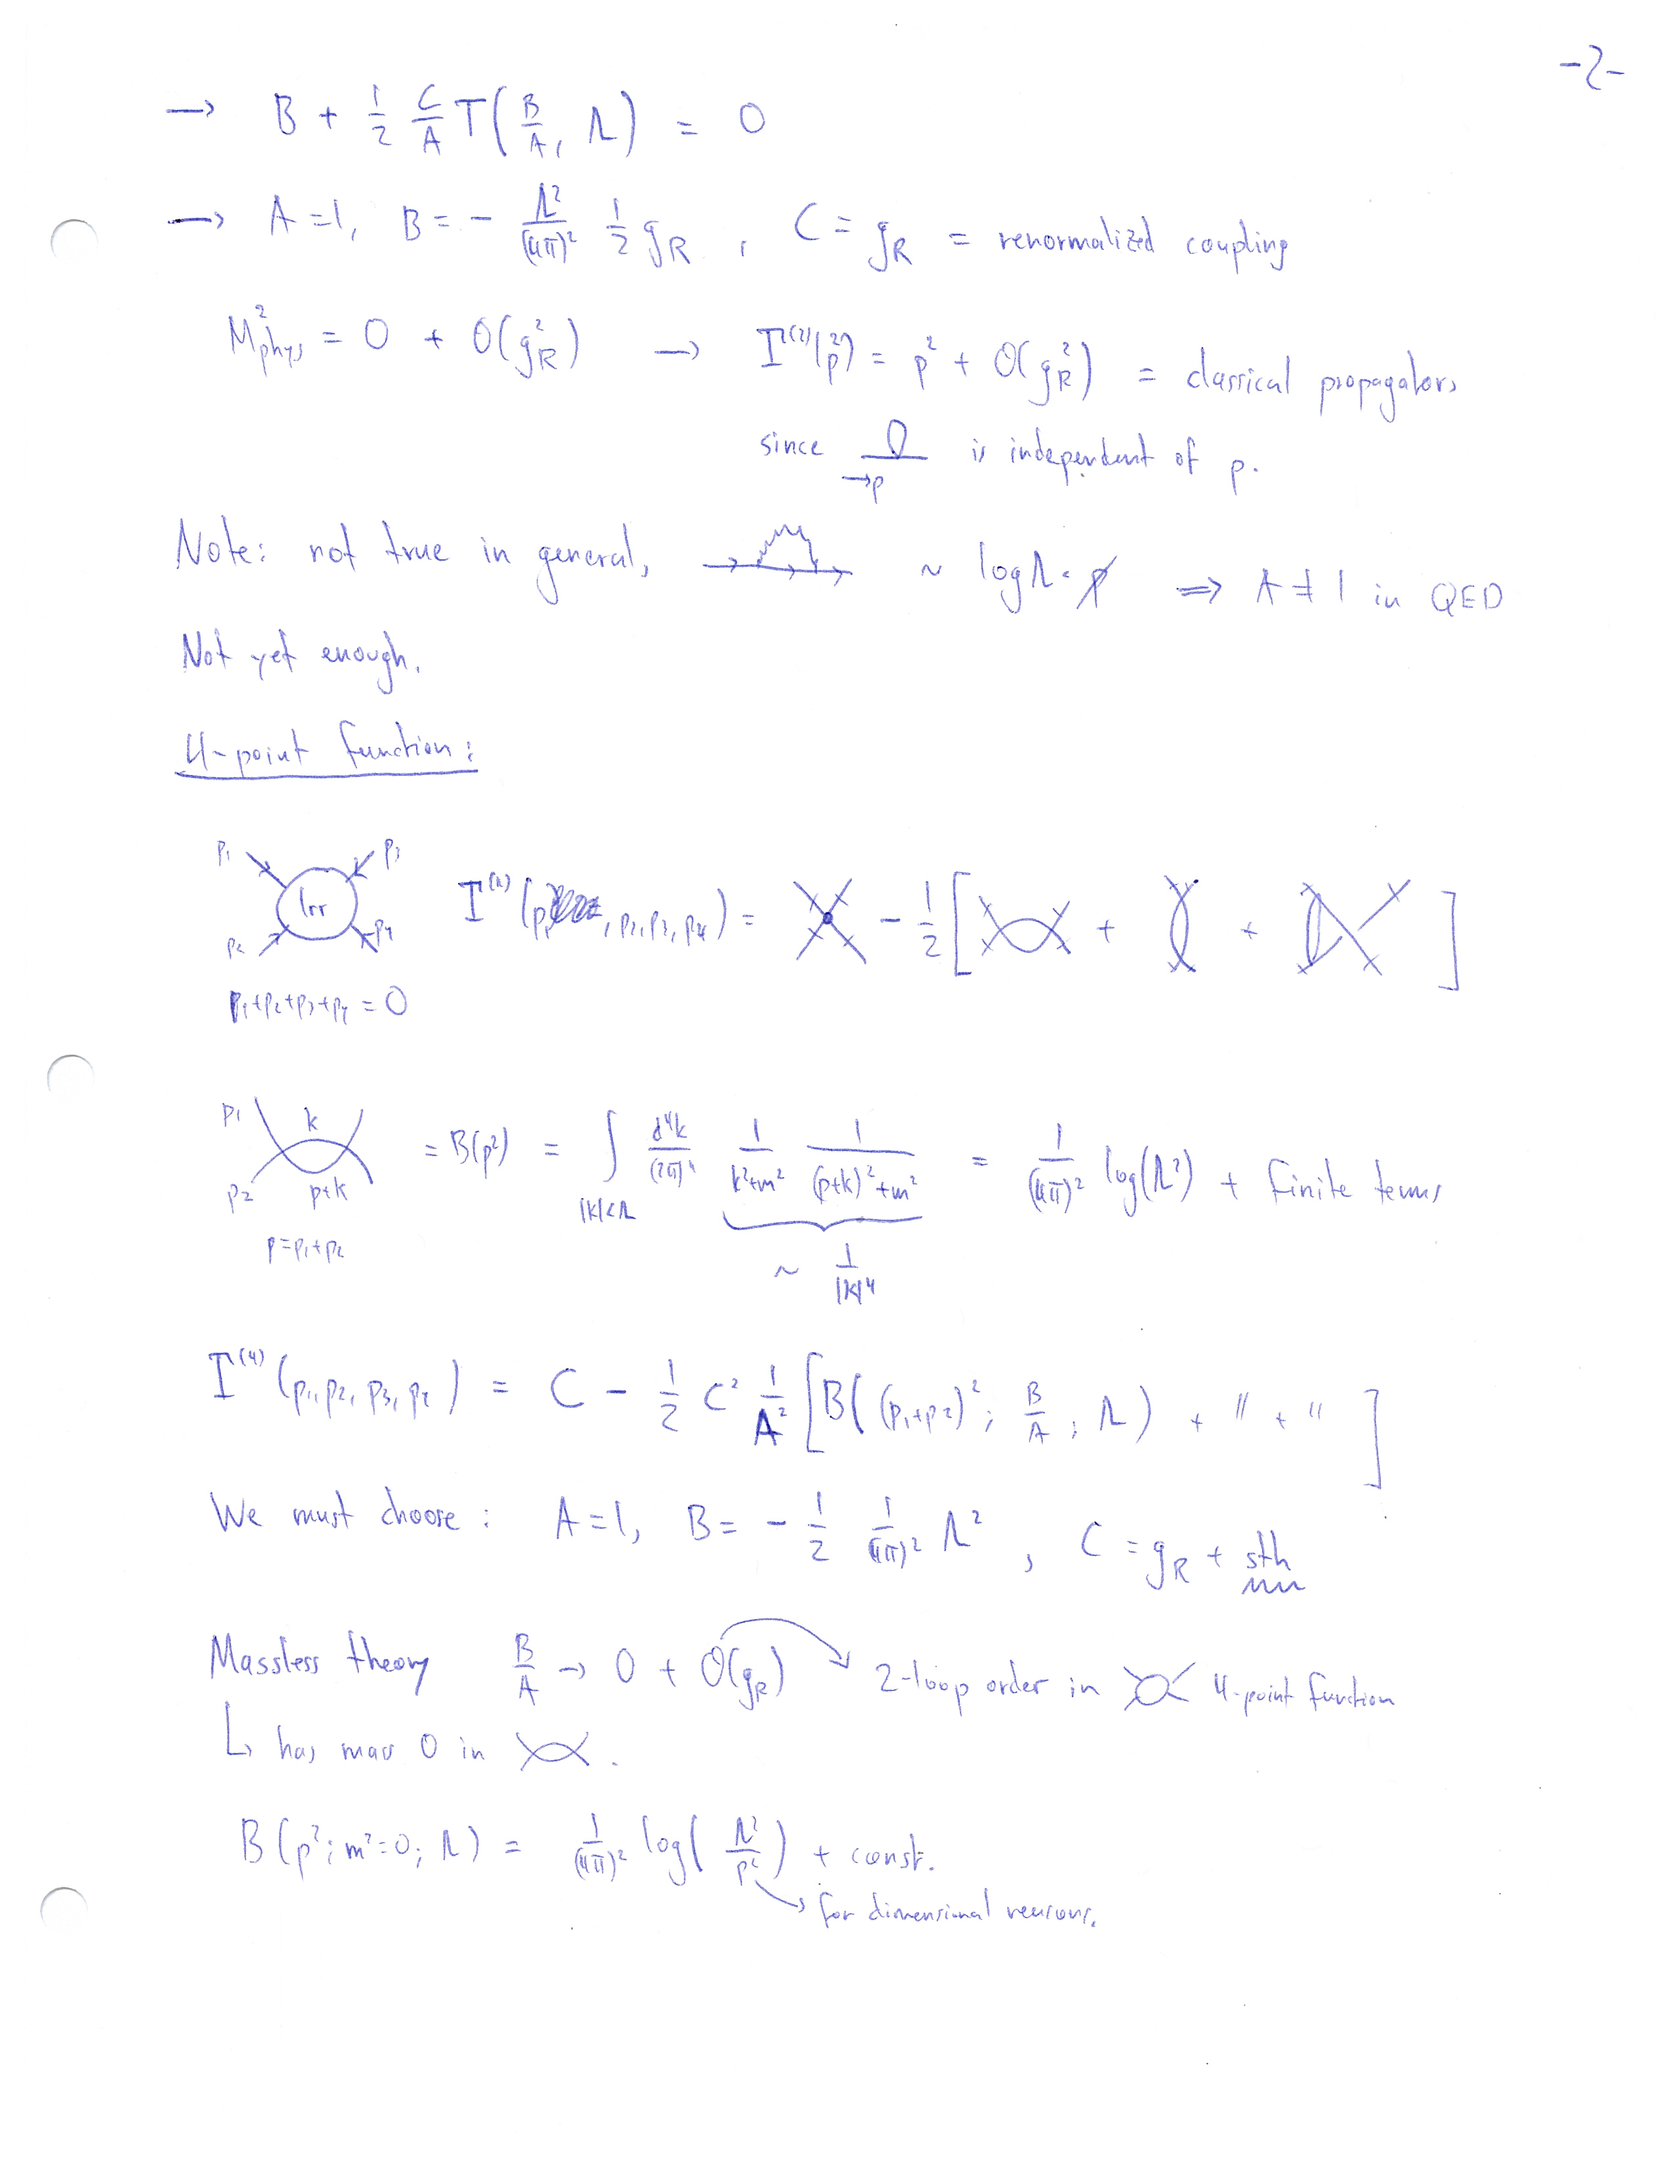 -2-
→ B + 1/2 C/A T(B/A, Λ) = 0
→ A = 1, B = - Λ²/(4π)² 1/2 g_R , C = g_R = renormalized coupling
M²_phys = 0 + O(g_R²) → Γ⁽²⁾(p²) = p² + O(g_R²) = classical propagators
since →p is independent of p.
Note: not true in general, ~ log Λ · p̸ ⇒ A ≠ 1 in QED
Not yet enough.
4-point function:
p₁ p₃ Irr p₂ p₄ Γ⁽⁴⁾(p₁, p₂, p₃, p₄) = - 1/2 [ + + ]
p₁+p₂+p₃+p₄ = 0
p₁ k p₂ p+k = B(p²) = ∫ d⁴k/(2π)⁴ 1/(k²+m²) 1/((p+k)²+m²) = 1/(4π)² log(Λ²) + finite terms
|k|<Λ
p=p₁+p₂
~ 1/|k|⁴
Γ⁽⁴⁾(p₁, p₂, p₃, p₄) = C - 1/2 C² 1/A² [B((p₁+p₂)²; B/A; Λ) + " + " ]
We must choose: A = 1, B = - 1/2 1/(4π)² Λ² , C = g_R + sth
Massless theory B/A → 0 + O(g_R) 2-loop order in 4-point function
↳ has mass 0 in .
B(p²; m²=0; Λ) = 1/(4π)² log(Λ²/p²) + const.
→ for dimensional reasons.